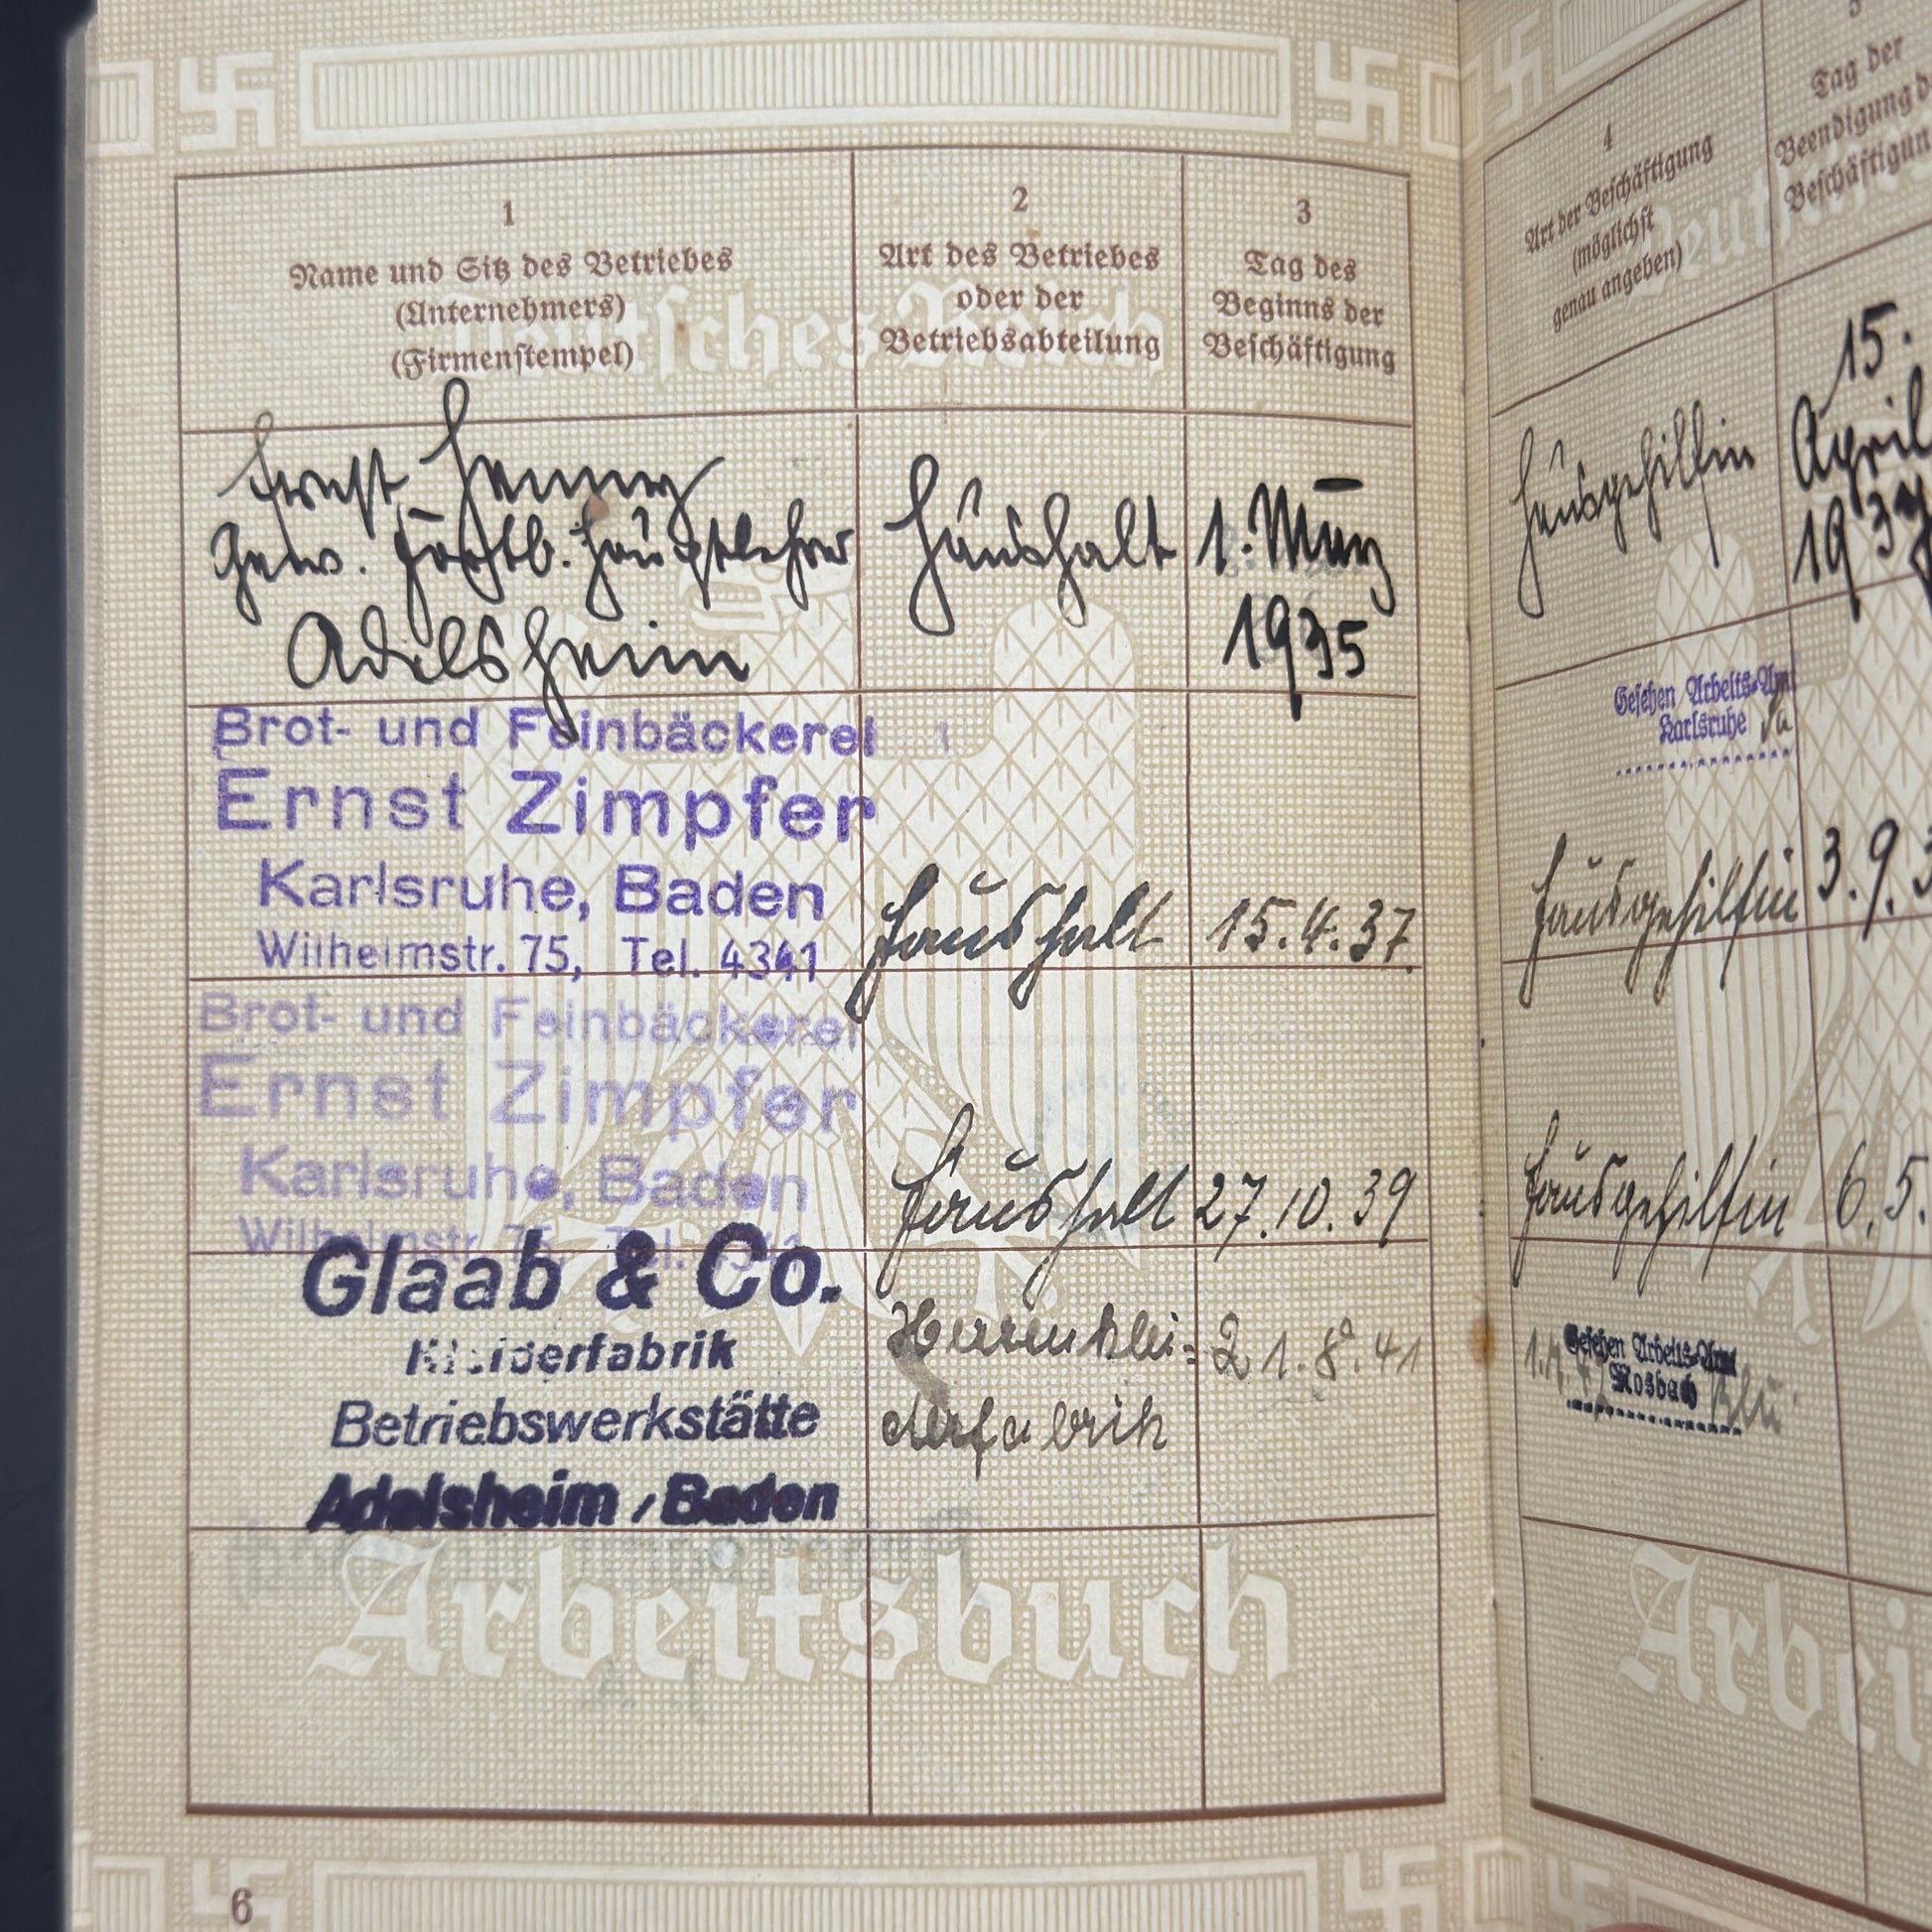 1
Name und Sitz des Betriebes
(Unternehmers)
(Firmenstempel)
2
Art des Betriebes
oder der
Betriebsabteilung
3
Tag des
Beginns der
Beschäftigung
Ernst Henny
Gew. Fortb. Hauptlehrer
Adelsheim
Haushalt
1. März
1935
Brot- und Feinbäckerei
Ernst Zimpfer
Karlsruhe, Baden
Wilhelmstr. 75, Tel. 4341
Haushalt
15.4.37.
Brot- und Feinbäckerei
Ernst Zimpfer
Karlsruhe, Baden
Wilhelmstr. 75, Tel.
Haushalt
27.10.39
Glaab & Co.
Kleiderfabrik
Betriebswerkstätte
Adelsheim / Baden
Herrenklei=
derfabrik
21.8.41
Deutsches Reich
Arbeitsbuch
6
4
Art der Beschäftigung
(möglichst
genau angeben)
5
Tag der
Beendigung
Beschäftigun
Hausgehilfin
15.
April
Gesehen Arbeits-Amt
Karlsruhe
Hausgehilfin
3.9.3
Hausgehilfin
6.5.
Gesehen Arbeits-Amt
Mosbach
Arbei